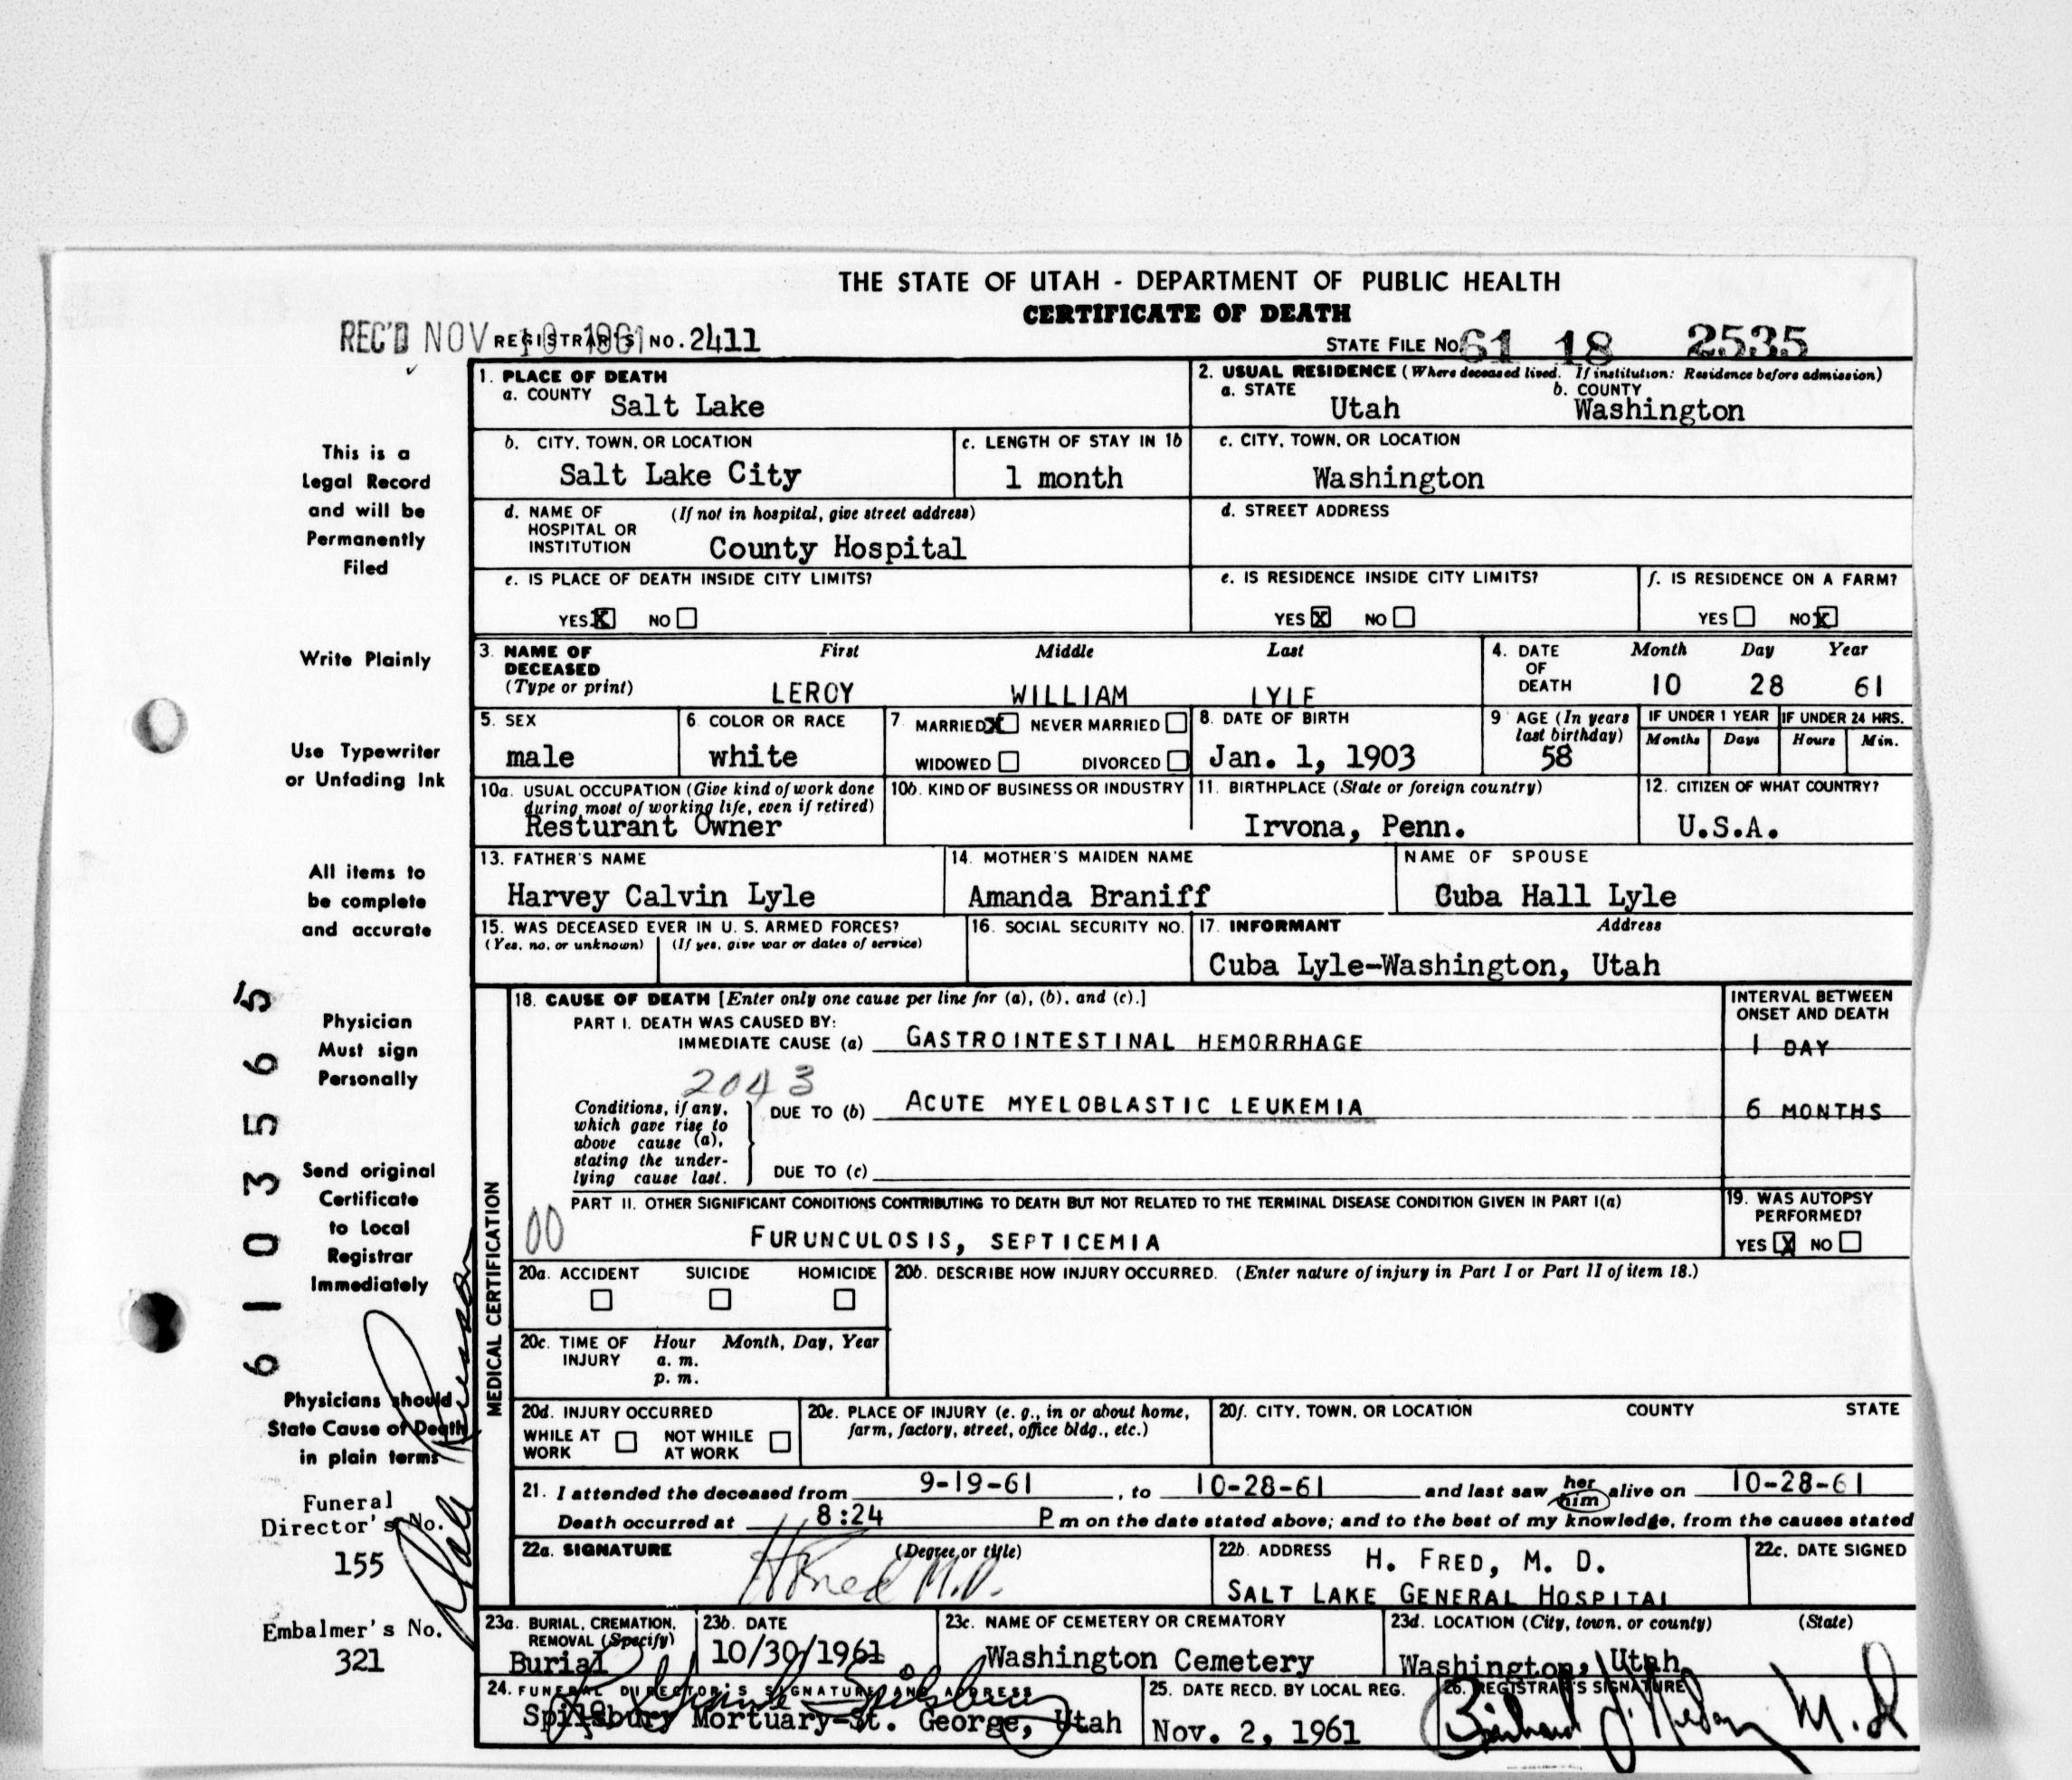 THE STATE OF UTAH - DEPARTMENT OF PUBLIC HEALTH
CERTIFICATE OF DEATH
REC'D NOV 10 1961 REGISTRAR'S NO. 2411
STATE FILE No 61 18 2535
1. PLACE OF DEATH
a. COUNTY Salt Lake
2. USUAL RESIDENCE (Where deceased lived. If institution: Residence before admission)
a. STATE Utah b. COUNTY Washington
b. CITY, TOWN, OR LOCATION Salt Lake City
c. LENGTH OF STAY IN 1b 1 month
c. CITY, TOWN, OR LOCATION Washington
d. NAME OF HOSPITAL OR INSTITUTION (If not in hospital, give street address) County Hospital
d. STREET ADDRESS
e. IS PLACE OF DEATH INSIDE CITY LIMITS? YES X NO
e. IS RESIDENCE INSIDE CITY LIMITS? YES X NO
f. IS RESIDENCE ON A FARM? YES NO X
3. NAME OF DECEASED (Type or print) First Middle Last
LEROY WILLIAM LYLE
4. DATE OF DEATH Month Day Year
10 28 61
5. SEX male
6. COLOR OR RACE white
7. MARRIED X NEVER MARRIED
WIDOWED DIVORCED
8. DATE OF BIRTH Jan. 1, 1903
9 AGE (In years last birthday) 58
IF UNDER 1 YEAR Months Days
IF UNDER 24 HRS. Hours Min.
10a. USUAL OCCUPATION (Give kind of work done during most of working life, even if retired)
Resturant Owner
10b. KIND OF BUSINESS OR INDUSTRY
11. BIRTHPLACE (State or foreign country) Irvona, Penn.
12. CITIZEN OF WHAT COUNTRY? U.S.A.
13. FATHER'S NAME Harvey Calvin Lyle
14. MOTHER'S MAIDEN NAME Amanda Braniff
NAME OF SPOUSE Cuba Hall Lyle
15. WAS DECEASED EVER IN U. S. ARMED FORCES?
(Yes, no, or unknown) (If yes, give war or dates of service)
16. SOCIAL SECURITY NO.
17. INFORMANT Address
Cuba Lyle-Washington, Utah
MEDICAL CERTIFICATION
18. CAUSE OF DEATH [Enter only one cause per line for (a), (b), and (c).]
INTERVAL BETWEEN ONSET AND DEATH
PART I. DEATH WAS CAUSED BY:
IMMEDIATE CAUSE (a) GASTROINTESTINAL HEMORRHAGE 1 DAY
2043
Conditions, if any, which gave rise to above cause (a), stating the underlying cause last.
DUE TO (b) ACUTE MYELOBLASTIC LEUKEMIA 6 MONTHS
DUE TO (c)
PART II. OTHER SIGNIFICANT CONDITIONS CONTRIBUTING TO DEATH BUT NOT RELATED TO THE TERMINAL DISEASE CONDITION GIVEN IN PART I(a)
00
FURUNCULOSIS, SEPTICEMIA
19. WAS AUTOPSY PERFORMED?
YES X NO
20a. ACCIDENT SUICIDE HOMICIDE
20b. DESCRIBE HOW INJURY OCCURRED. (Enter nature of injury in Part I or Part II of item 18.)
20c. TIME OF INJURY Hour Month, Day, Year
a. m.
p. m.
20d. INJURY OCCURRED
WHILE AT WORK NOT WHILE AT WORK
20e. PLACE OF INJURY (e. g., in or about home, farm, factory, street, office bldg., etc.)
20f. CITY, TOWN, OR LOCATION COUNTY STATE
21. I attended the deceased from 9-19-61, to 10-28-61 and last saw her him alive on 10-28-61
Death occurred at 8:24 P m on the date stated above; and to the best of my knowledge, from the causes stated
22a. SIGNATURE (Degree or title)
H Fred M.D.
22b. ADDRESS H. FRED, M. D.
SALT LAKE GENERAL HOSPITAL
22c. DATE SIGNED
23a. BURIAL, CREMATION, REMOVAL (Specify) Burial
23b. DATE 10/30/1961
23c. NAME OF CEMETERY OR CREMATORY Washington Cemetery
23d. LOCATION (City, town, or county) (State)
Washington, Utah
24. FUNERAL DIRECTOR'S SIGNATURE AND ADDRESS
Spilsbury Mortuary-St. George, Utah
25. DATE RECD. BY LOCAL REG. Nov. 2, 1961
26. REGISTRAR'S SIGNATURE
M.D
This is a
Legal Record
and will be
Permanently
Filed
Write Plainly
Use Typewriter
or Unfading Ink
All items to
be complete
and accurate
Physician
Must sign
Personally
Send original
Certificate
to Local
Registrar
Immediately
Physicians should
State Cause of Death
in plain terms
Funeral
Director's No.
155
Embalmer's No.
321
61035655